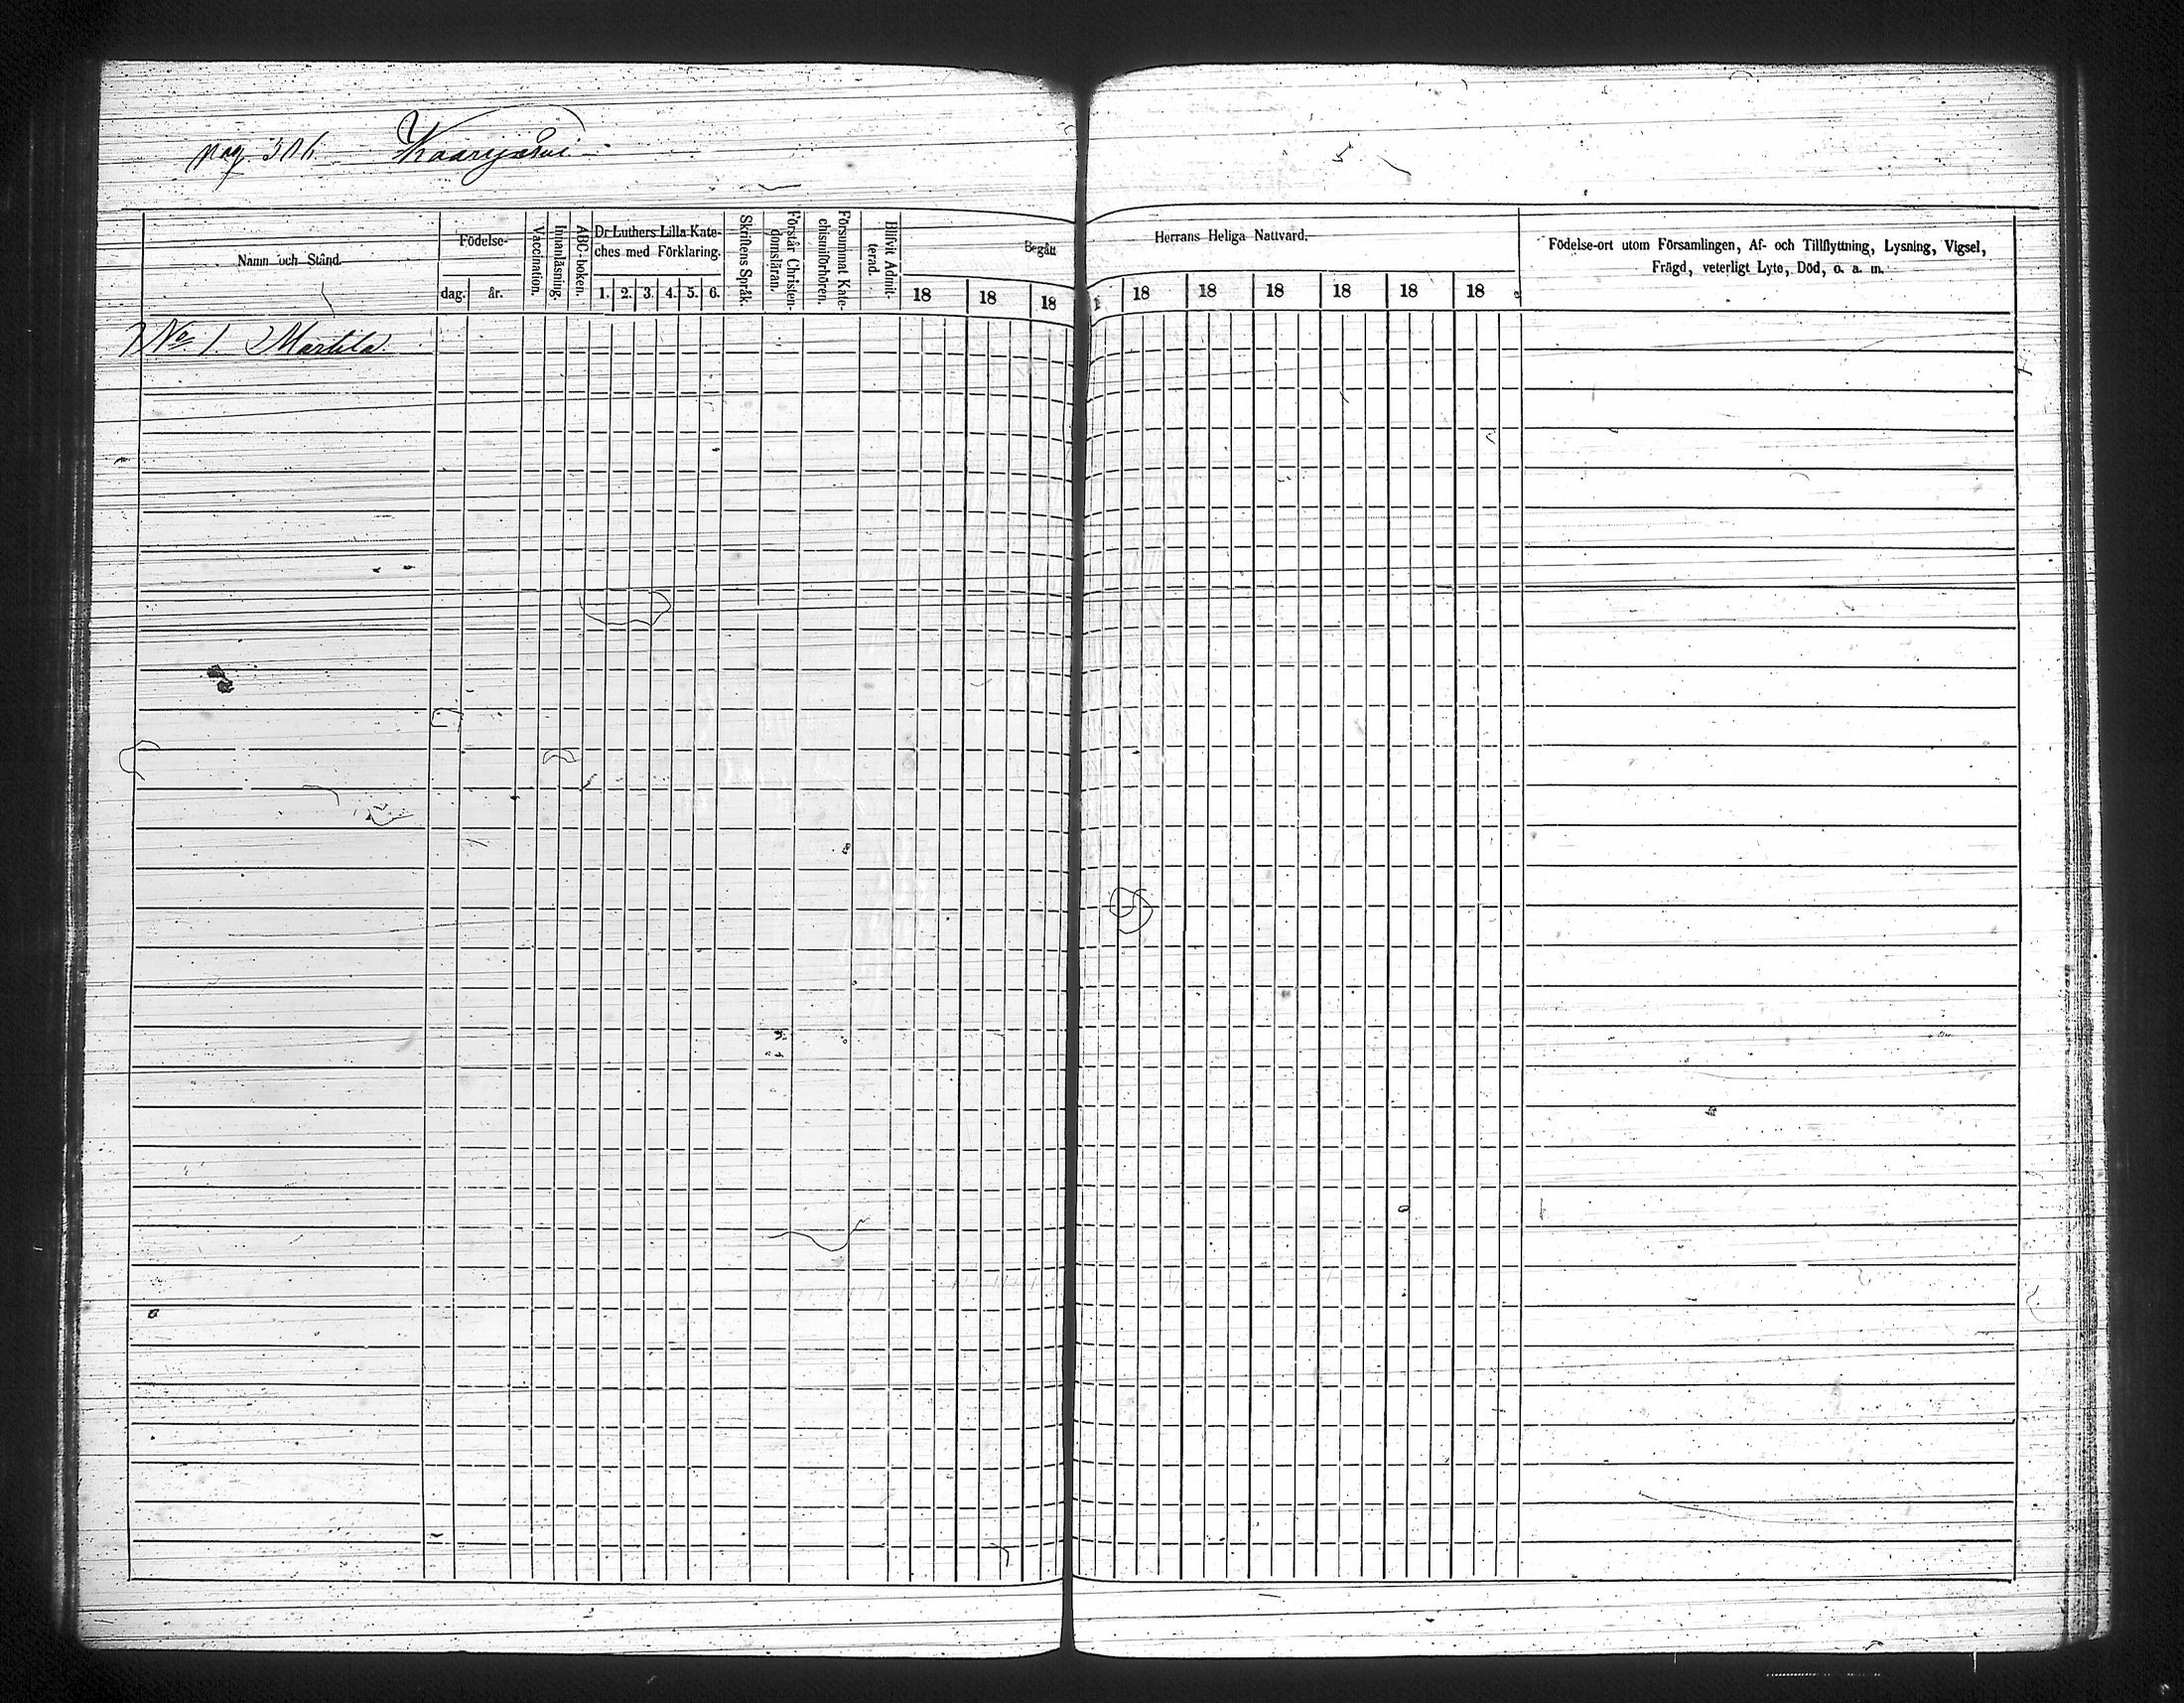 pag 306 Kaarijärvi
Namn och Stånd.
Födelse-
dag. år.
Vaccination.
Innanläsning.
ABC-boken.
Dr Luthers Lilla Kate-
ches med Förklaring.
1. 2. 3. 4. 5. 6.
Skriftens Språk.
Förstår Christen-
domsläran.
Försummat Kate-
chismiförhören.
Blifvit Admit-
terad.
Begått Herrans Heliga Nattvard.
18 18 18 18 18 18 18 18 18
Födelse-ort utom Församlingen, Af- och Tillflyttning, Lysning, Vigsel,
Frägd, veterligt Lyte, Död, o. a. m.
No 1. Marttila.